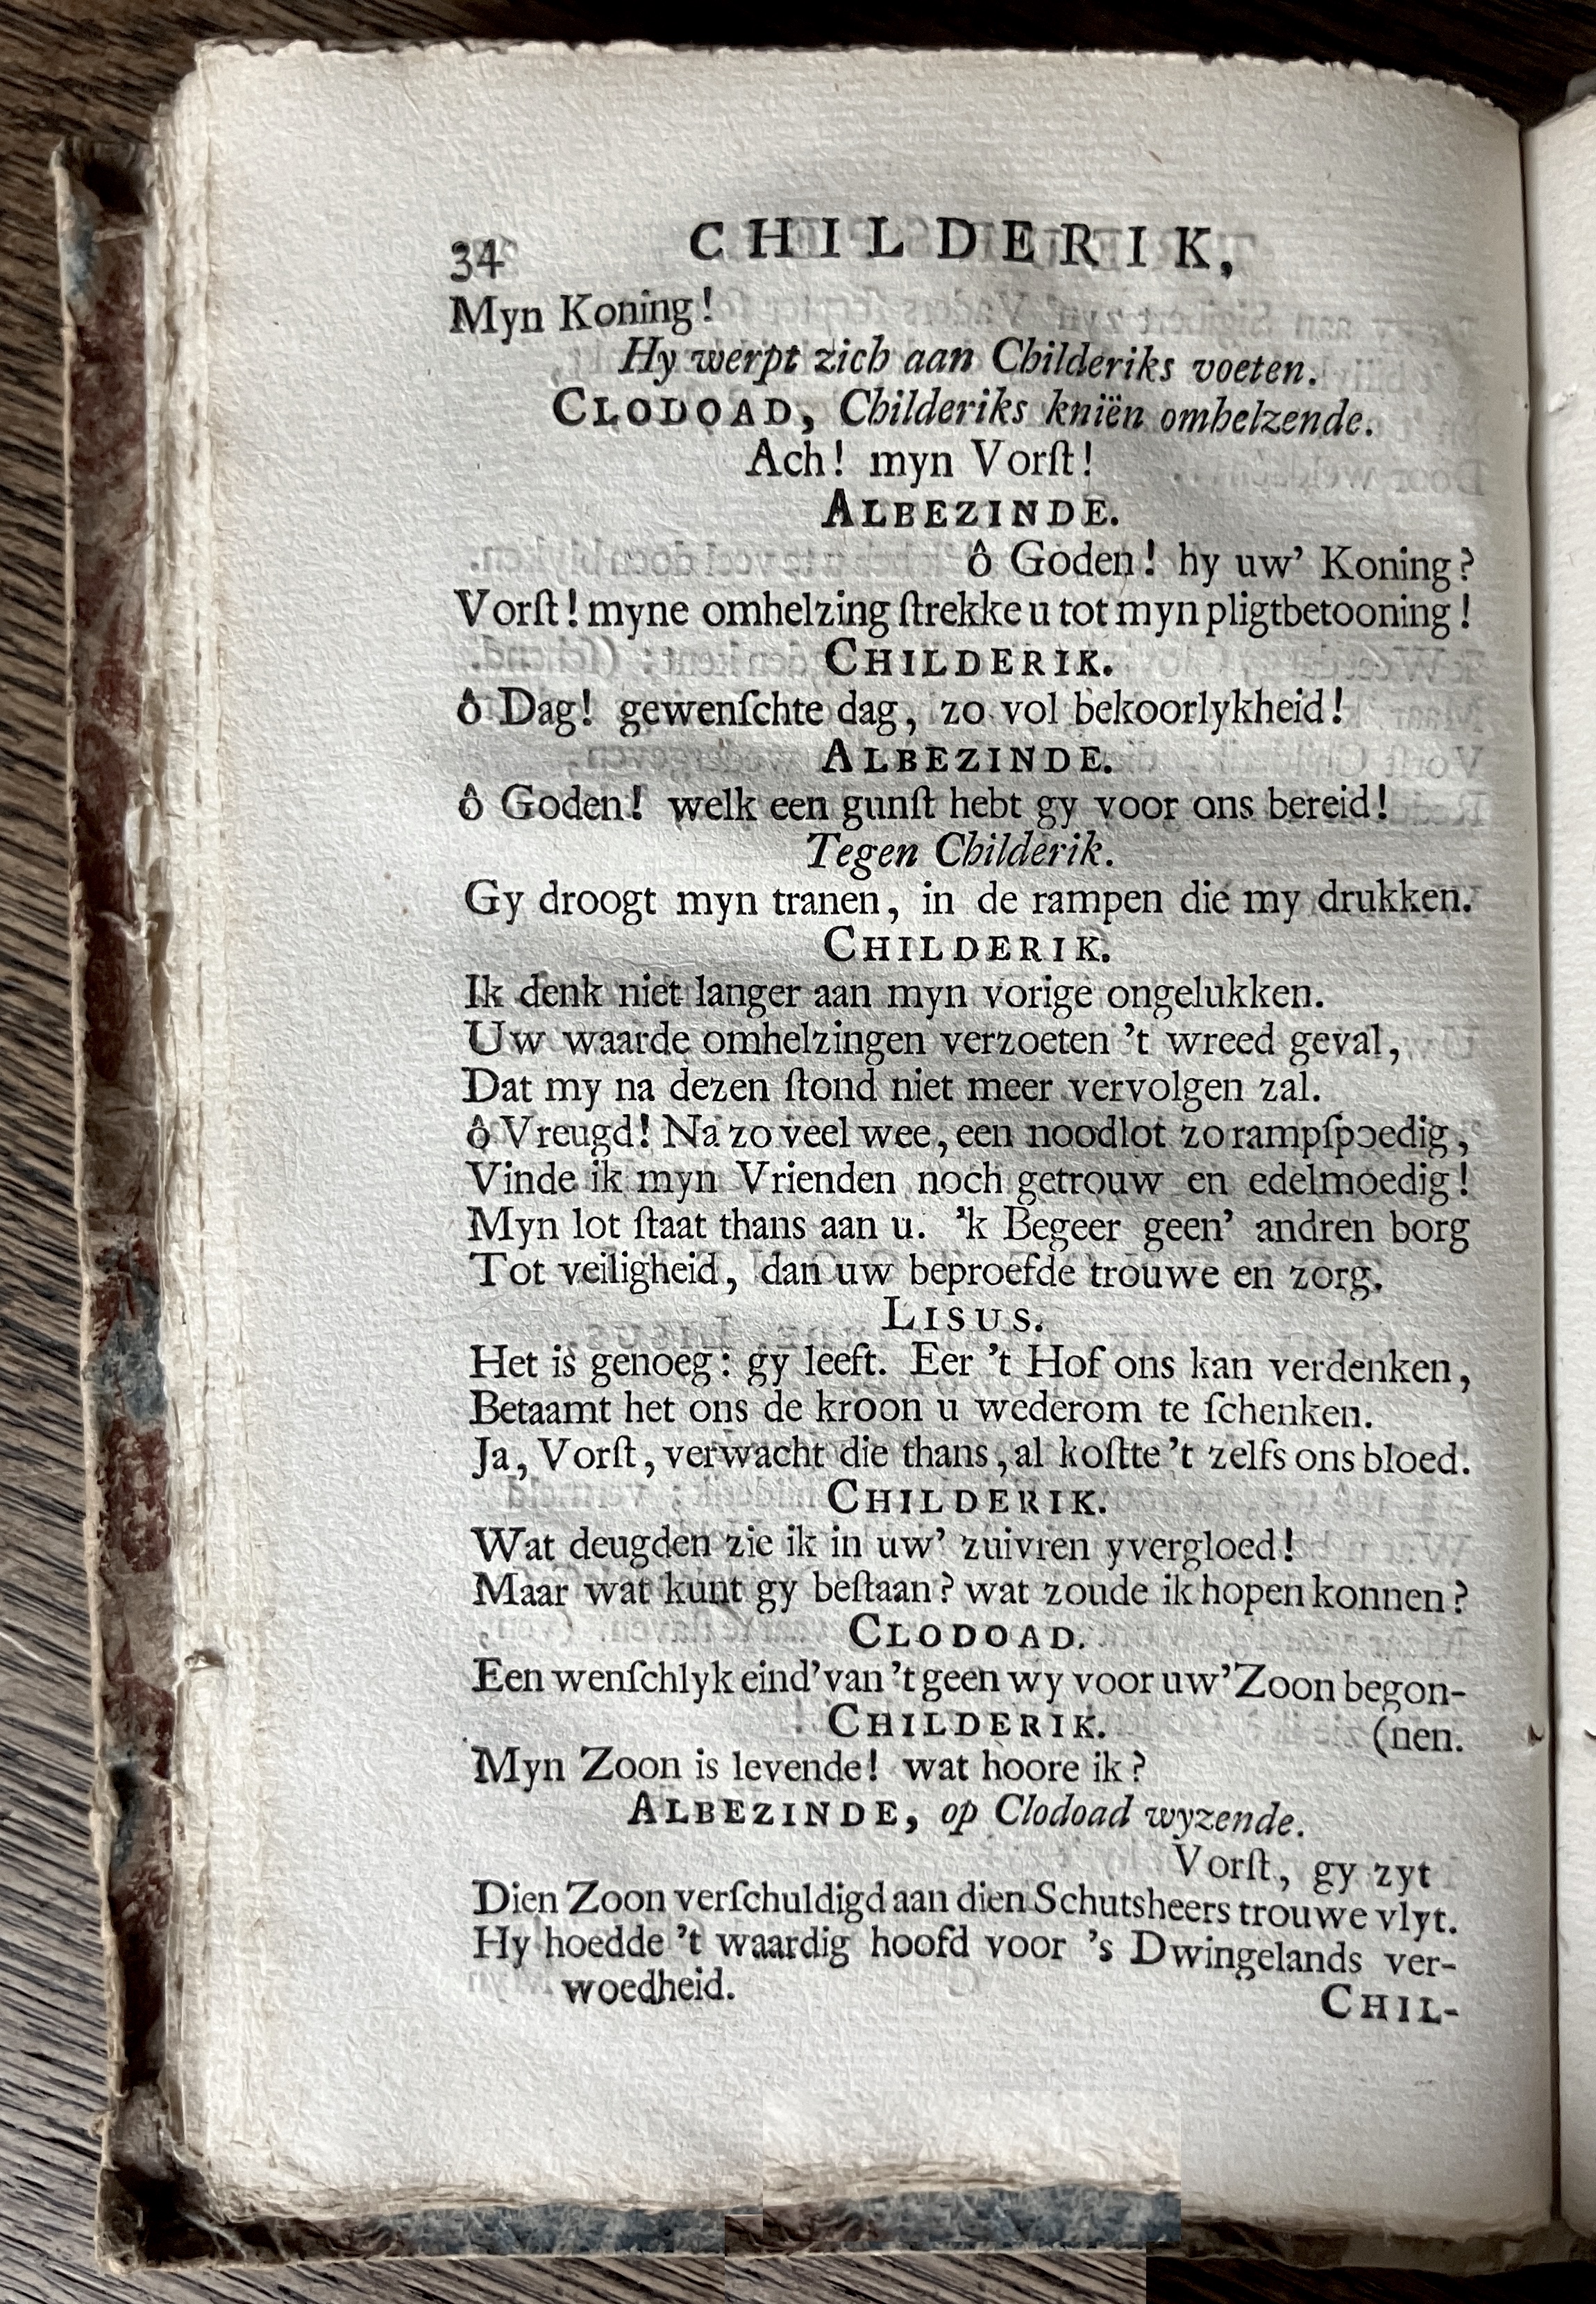 34 CHILDERIK,
Myn Koning!
Hy werpt zich aan Childeriks voeten.
CLODOAD, Childeriks kniën omhelzende.
Ach! myn Vorſt!
ALBEZINDE.
ô Goden! hy uw’ Koning?
Vorſt! myne omhelzing ſtrekke u tot myn pligtbetooning!
CHILDERIK.
ô Dag! gewenſchte dag, zo vol bekoorlykheid!
ALBEZINDE.
ô Goden! welk een gunſt hebt gy voor ons bereid!
Tegen Childerik.
Gy droogt myn tranen, in de rampen die my drukken.
CHILDERIK.
Ik denk niet langer aan myn vorige ongelukken.
Uw waarde omhelzingen verzoeten ’t wreed geval,
Dat my na dezen ſtond niet meer vervolgen zal.
ô Vreugd! Na zo veel wee, een noodlot zo rampſpoedig,
Vinde ik myn Vrienden noch getrouw en edelmoedig!
Myn lot ſtaat thans aan u. ’k Begeer geen’ andren borg
Tot veiligheid, dan uw beproefde trouwe en zorg.
LISUS.
Het is genoeg: gy leeft. Eer ’t Hof ons kan verdenken,
Betaamt het ons de kroon u wederom te ſchenken.
Ja, Vorſt, verwacht die thans, al koſtte ’t zelfs ons bloed.
CHILDERIK.
Wat deugden zie ik in uw’ zuivren yvergloed!
Maar wat kunt gy beſtaan? wat zoude ik hopen konnen?
CLODOAD.
Een wenſchlyk eind’ van ’t geen wy voor uw’ Zoon begon-
CHILDERIK. (nen.
Myn Zoon is levende! wat hoore ik?
ALBEZINDE, op Clodoad wyzende.
Vorſt, gy zyt
Dien Zoon verſchuldigd aan dien Schutsheers trouwe vlyt.
Hy hoedde ’t waardig hoofd voor ’s Dwingelands ver-
woedheid.
CHIL-